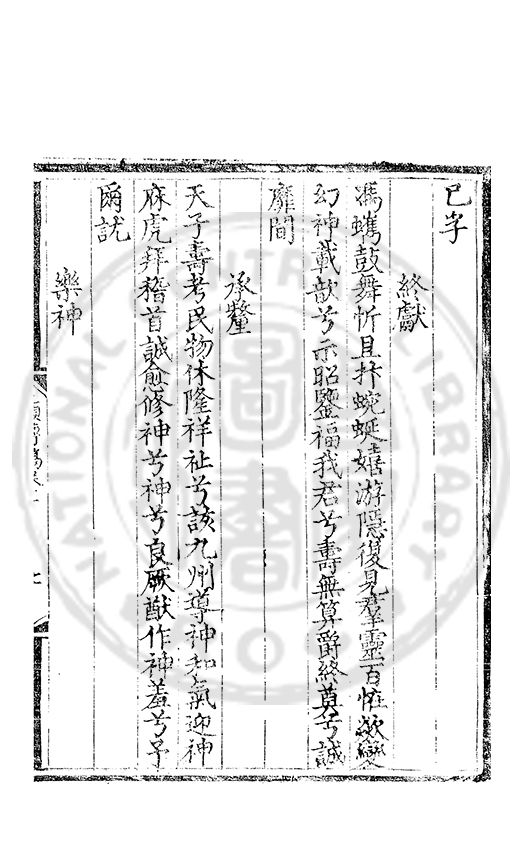 已字
終獻
馮蠵鼓舞忻且抃蜿蜒嬉游隱復見羣靈百怪欻變
幻神載歆兮示昭鑒福我君兮壽無算爵終奠兮誠
靡間
承釐
天子壽考民物休隆祥祉兮該九州導神和氣迎神
庥虎拜稽首誠愈修神兮神兮良厥猷作神羞兮予
爾訧
樂神